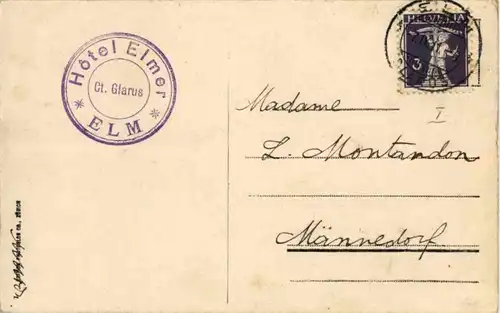 HELVETIA
3
Hôtel Elmer
Ct. Glarus
* ELM *
I
Madame
L. Montandon
Männedorf